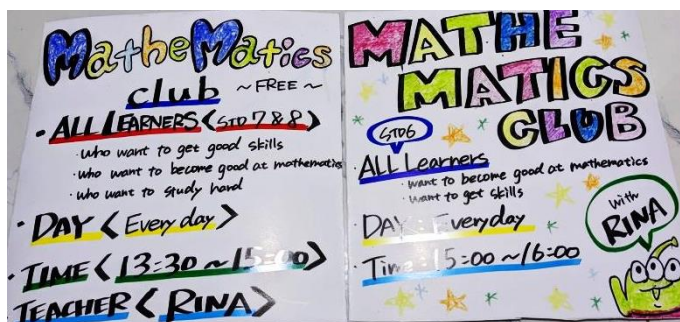 MatheMatics
club ~FREE~
· ALL LEARNERS <STD 7&8>
· who want to get good skills
· who want to become good at mathematics
· who want to study hard
· DAY < Everyday >
· TIME < 13:30 ~ 15:00 >
TEACHER < RINA >
MATHE
MATICS
CLUB
STD6
ALL Learners
· want to become good at mathematics
· want to get skills
DAY: Everyday
· Time: 15:00 ~ 16:00
with
RINA